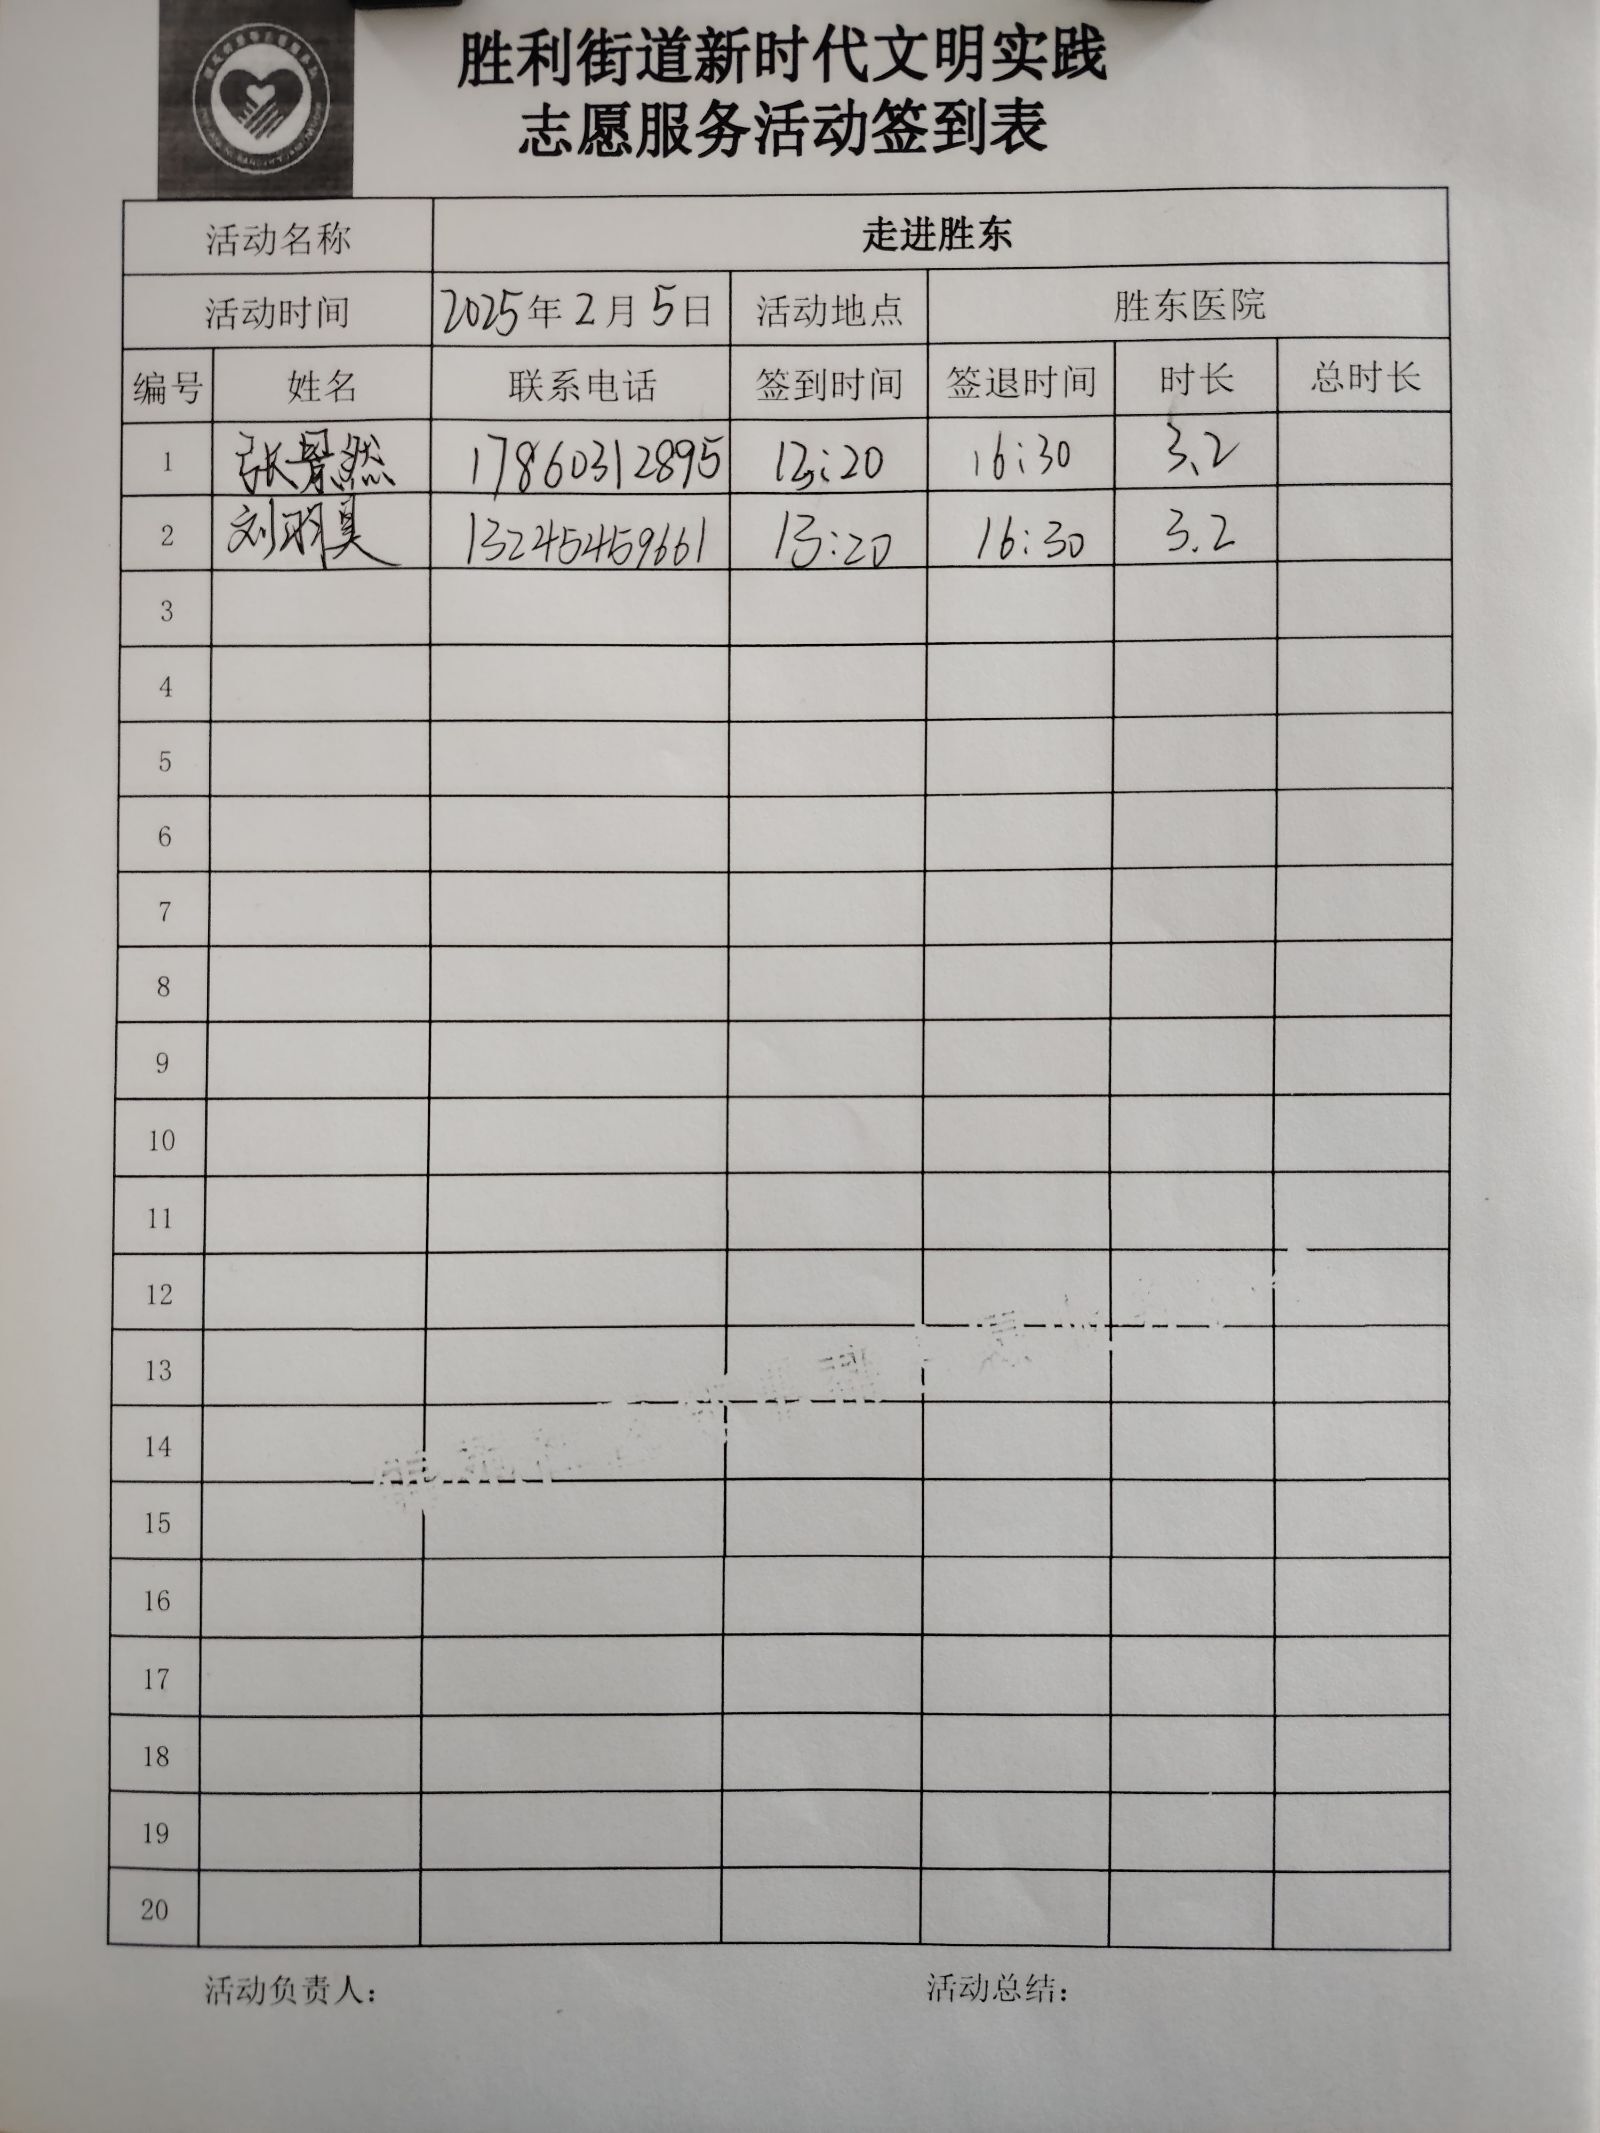 胜利街道新时代文明实践
志愿服务活动签到表
活动名称 走进胜东
活动时间 2025年2月5日 活动地点 胜东医院
编号 姓名 联系电话 签到时间 签退时间 时长 总时长
1 张景然 17860312895 13:20 16:30 3.2
2 刘羽昊 13245459661 13:20 16:30 3.2
3
4
5
6
7
8
9
10
11
12
13
14
15
16
17
18
19
20
活动负责人： 活动总结：